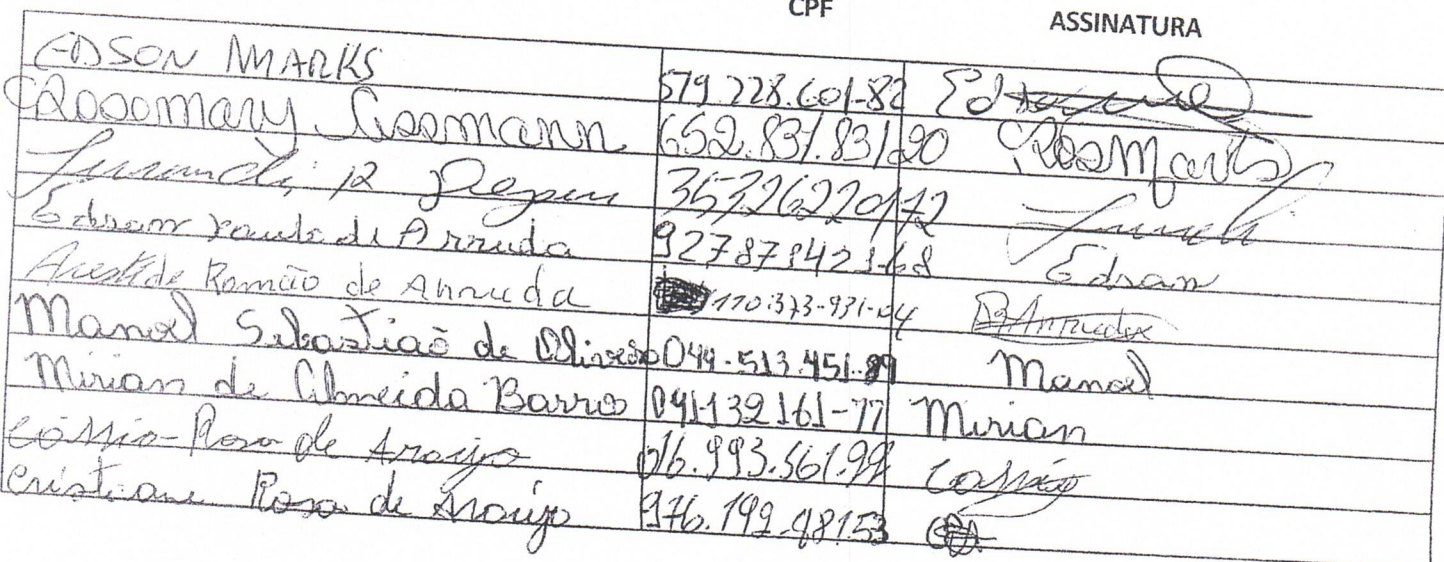 CPF ASSINATURA
EDSON MARKS 579.228.601-82 Ed
Rosomary Assmann 652.831.831/20 RosMarks
R 35326220172
Edson Paulo de Arruda 927878421-68 Edson
Aristide Romão de Arruda 110.373-931-04 Arruda
Manoel Sebastião de Oliveira 044-513.451-89 Manoel
Mirian de Almeida Barros 041132161-77 Mirian
Cássio Rosa de Araújo 016.993.561.99 Cássio
Cristiane Rosa de Araújo 976.192.981.53